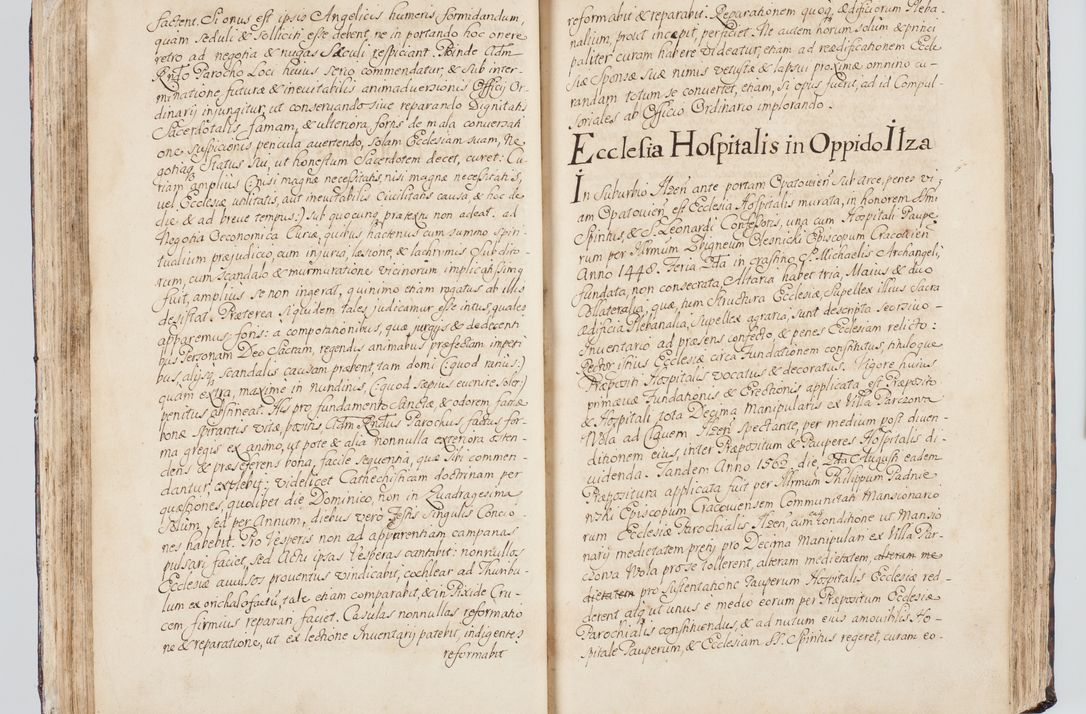 factent. Si onus est ipsis Angelicis humeris formidandum,
quàm seduli & solliciti esse debent, ne in portando hoc onere
retro ad negotia & nugas Sæculi respiciant. Proinde Adm
Rndo Parocho Loci huius serio commendatur, & sub inter-
minatione futuræ & ineuitabilis animaduersionis Officij Or-
dinarij injungitur, ut conseruando siue reparando Dignitatis
Sacerdotalis famam, & ulteriora fortis de mala conuersati
one suspicionis pericula auertendo, solam Ecclesiam suam, Ne
gotiaq Status sui, ut honestum Sacerdotem decet, curet: Cu
riam ampliùs (nisi magnæ necessitatis, nisi magnæ necessitatis,
vel Ecclesiæ utilitatis, aut ineuitabilis Ciuilitatis causa, & hoc de
die & ad breue tempus:) sub quocunq prætextu non adeat. ad
Negotia Oeconomica Curiæ, quibus hactenus cum summo spiri-
tualium præjudicio, cum injuria, læsione, & lachrymis Subdito-
rum, cum scandalo & murmuratione vicinorum implicatissimq
fuit, ampliùs se non ingerat, quinimo etiam rogatus ab illis
desistat. Præterea siquidem tales judicamur esse intus, quales
apparemus foris: a compotationibus, quæ jurgijs & dedecenti
bus Personam Deo Sacram, regendis animabus præfectam imperi
bus, alijsq scandalis causam præbent, tam domi (:quod rariùs:)
quam extra, maximè in nundinis (:quod sæpius euenire solet:)
penitus abstineat. His pro fundamento sanctæ, & odorem famæ
bonæ spirantis vitæ, positis, Adm Rndus Parochus, factus for-
ma gregis ex animo, ut pote & alia nonnulla exteriora osten-
dens & præseferens bona, facile sequentia, quæ Sibi commen-
dantur, exhibebit: videlicet Cathechisticam doctrinam per
quæstiones, quolibet die Dominico, non in Quadragesima
solum, sed per Annum, diebus verò Festis singulis Concio-
nes habebit. Pro Vesperis non ad apparentiam campanas
pulsari faciet, sed Actu ipsas Vesperas cantabit: nonnullos
Ecclesiæ auulsos prouentus vindicabit, cochlear ad Thuribu-
lum ex orichalco factū, tale etiam comparabit, & in Pixide Cru-
cem firmius reparari faciet. Casulas nonnullas reformatio
ne & reparatione, ut ex lectione Inuentarij patebit, indigentes
reformabit
reformabit & reparabit: Reparationem quoq Ædificiorum Pleba-
nalium, prout incepit, perficiet. Ne autem horum solùm & princi
paliter curam habere videatur, etiam ad reædificationem Eccle
siæ Sponsæ suæ nimis vetustæ & lapsui proximæ omnino cu-
randam totum se conuertet, etiam, si opus fuerit, ad id Compul-
soriales ab Officio Ordinario implorando.
Ecclesia Hospitalis in Oppido Ilza
In suburbio Ilzen ante portam Opatouien sub arce, penes vi-
am Opatouien est Ecclesia Hospitalis murata, in honorem Almi
Spiritus, & S. Leonardi Confessoris, una cum Hospitali Paupe-
rum per Illrmum Sbigneum Olesnicki Episcopum Cracouien
Anno 1448. Feria 2da in crastino S. Michaelis Archangeli,
fundata, non consecrata, Altaria habet tria, Maius & duo
Collateralia, quæ, tum Structura Ecclesiæ, Supellex illius sacra
ædificia Plebanalia, supellex agraria, sunt descripta seorsiuo
Inuentario ad præsens confecto, & penes Ecclesiam relicto:
Rector istius Ecclesiæ circa Fundationem constitutus, tituloque
Præpositi Hospitalis vocatus & decoratus. Vigore huius
primæuæ Fundationis & Erectionis applicata est Præposito
& Hospitali tota Decima Manipularis ex Villa Parczona
Wola ad Clauem Ilzen spectante, per medium post diuen-
ditionem eius, inter Præpositum & Pauperes Hospitalis di-
uidenda. Tandem Anno 1562. die 2da Augusti eadem
Præpositura applicata fuit per Illrmum Philippum Padnie
wski Episcopum Cracouiensem Communitati Mansionario
rum Ecclesiæ Parochialis Ilzen, cum conditione ut Mansio
narij medietatem pretij pro Decima Manipulari ex Villa Par-
czona Wola pro se tollerent, alteram medietatem, alteram me
dietatem pro sustentatione Pauperum Hospitalis Ecclesiæ red
derent, atq ut unus e medio eorum per Præpositum Ecclesiæ
Parochialis constituendus, & ad nutum eius amouibilis Ho-
spitale Pauperum, & Ecclesiam SS. Spiritus regeret, curam eo-